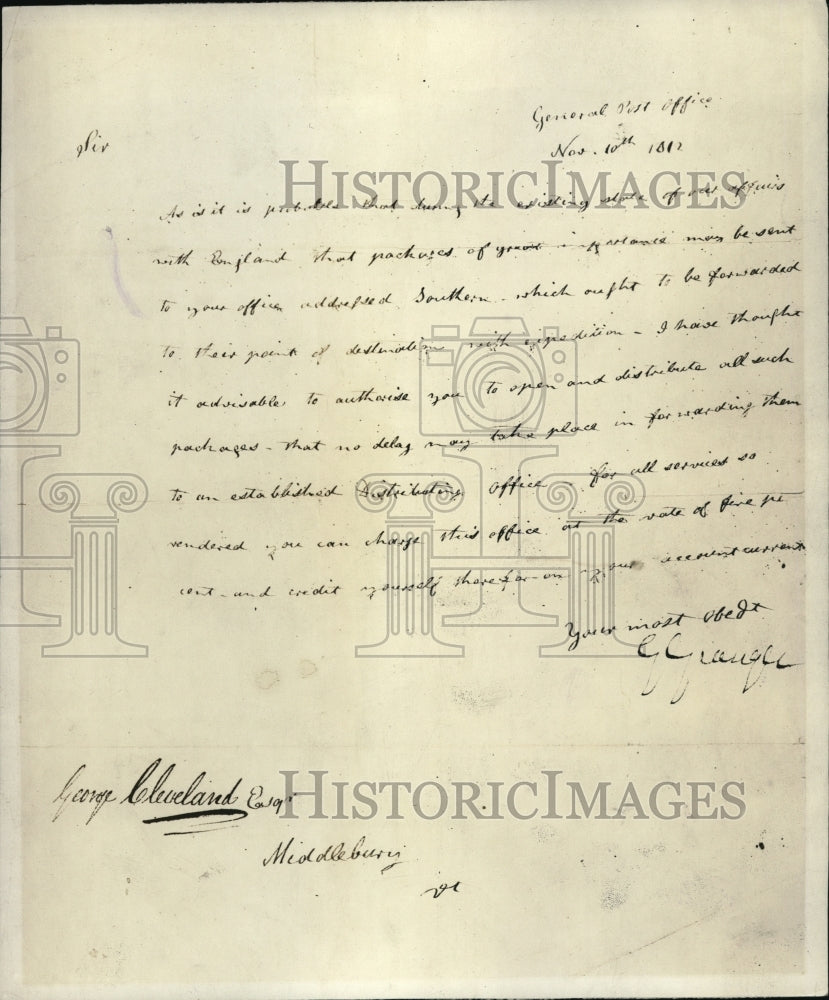 General Post Office
Nov. 10th 1812
Sir
As it is probable that during the existing state of our affairs
with England that packages of great importance may be sent
to your office addressed Southern - which ought to be forwarded
to their point of destination with expedition - I have thought
it advisable to authorise you to open and distribute all such
packages - that no delay may take place in forwarding them
to an established Distributing office - for all services so
rendered you can charge this office at the rate of five pr
cent - and credit yourself therefor - on your account current
Your most obedt
G Granger
George Cleveland Esqr
Middlebury
Vt
HISTORICIMAGES
HISTORICIMAGES